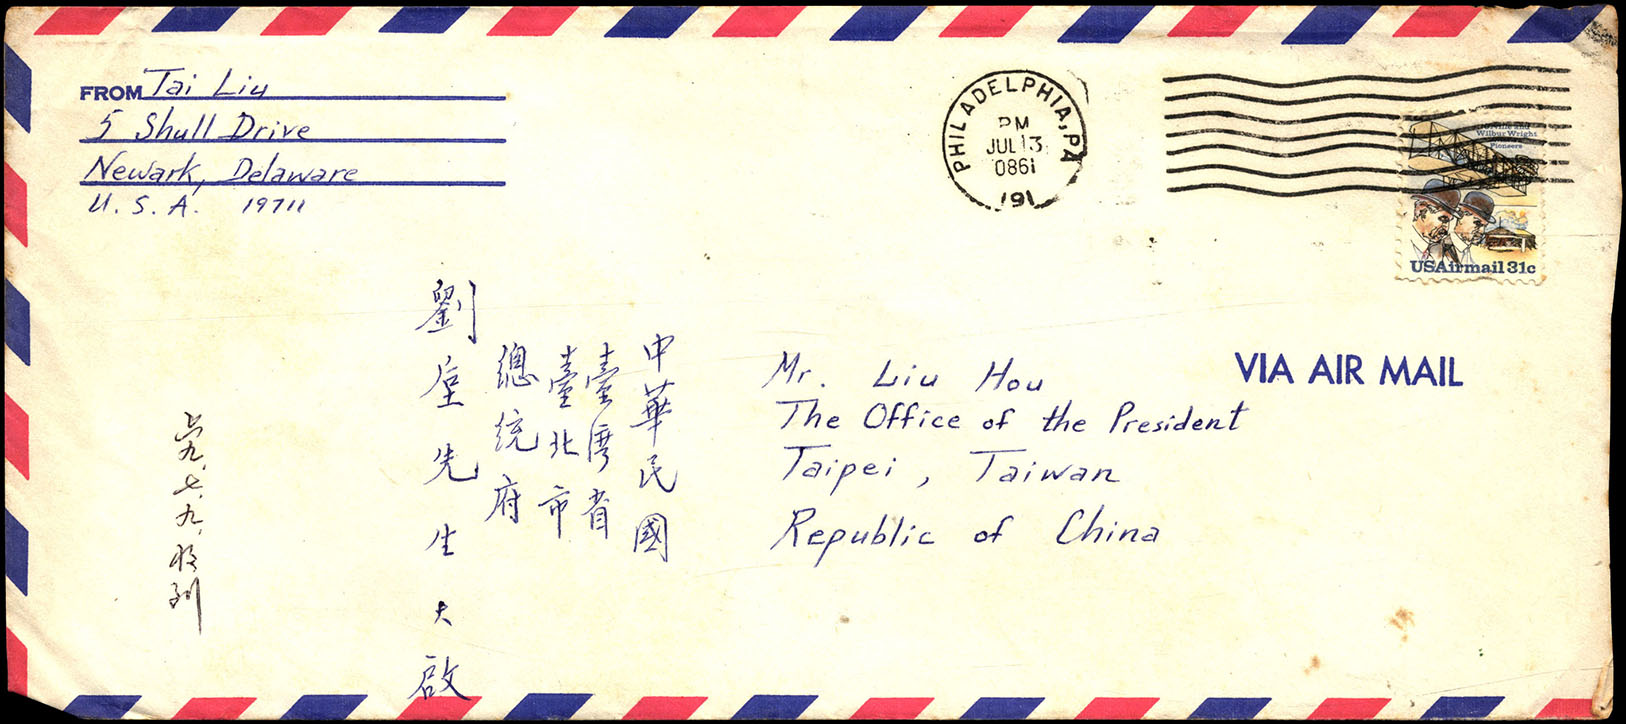 FROM Tai Liu
5 Shull Drive
Newark, Delaware
U. S. A. 19711
PHILADELPHIA, PA
PM
JUL 13
0861
191
Orville and
Wilbur Wright
Pioneers
USAirmail 31c
VIA AIR MAIL
Mr. Liu Hou
The Office of the President
Taipei, Taiwan
Republic of China
中華民國
臺灣省
臺北市
總統府
劉垕先生大啟
九.七.九.收到